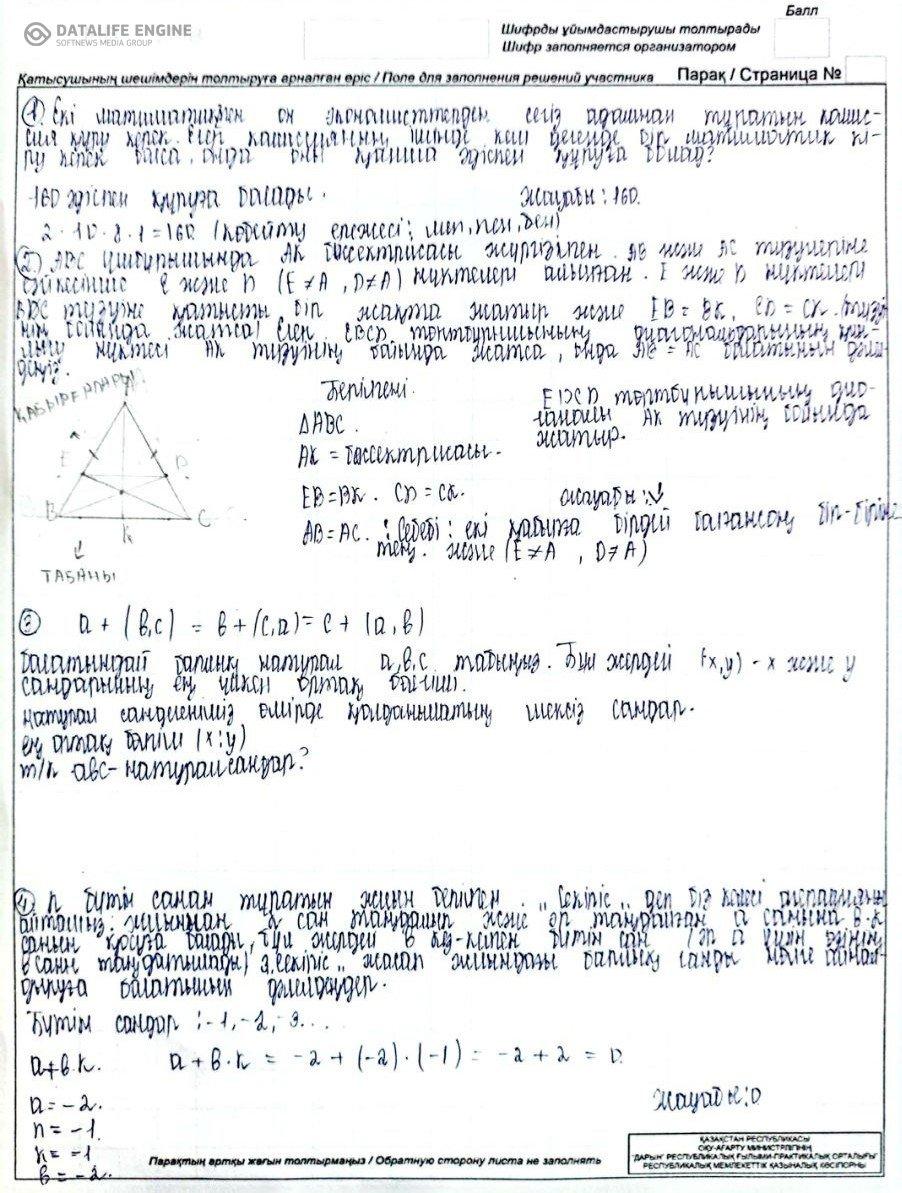 DATALIFE ENGINE
SOFTNEWS MEDIA GROUP
Балл
Шифрды ұйымдастырушы толтырады
Шифр заполняется организатором
Қатысушының шешімдерін толтыруға арналған өріс / Поле для заполнения решений участника Парақ / Страница №
1) Екі математиктен он экономисттерден сегіз адамнан тұратын комис-
сия құру керек. Егер комиссияның ішінде кем дегенде бір математик кі-
ру керек болса, онда оны қанша әдіспен құруға болад?
160 әдіспен құруға болады. Жауабы: 160.
2 · 10 · 8 · 1 = 160 (көбейту ережесі; мен, пен, бен)
2) ABC үшбұрышында AK биссектрисасы жүргізілген. AB және AC түзулеріне
сәйкесінше E және D (E ≠ A, D ≠ A) нүктелері алынған. E және D нүктелері
түзуіне қатысты бір жақта жатыр және EB = BK, CD = CK.
бойында жатса) Егер төртбұрышының диагональдарының
нүктесі AK түзуінің бойында жатса, онда AB = AC болатынын дәлел-
деңіз.
ҚАБЫРҒАЛАРЫ
Берілгені:
төртбұрышының диа-
гоналы AK түзуінің бойында
жатыр.
ΔABC.
AK = биссектрисасы.
E D
B K C
EB = BK. CD = CK. Жауабы: ↓
AB = AC. : Себебі: екі қабырға бірдей болғансоң бір-біріне
тең. және (E ≠ A, D ≠ A)
ТАБАНЫ
3) a + (b,c) = b + (c,a) = c + (a,b)
болатындай барлық натурал a, b, c табыңыз. Бұл жердей (x,y) - x және y
сандарының ең үлкен ортақ бөлгіші.
натурал сан дегеніміз өмірде қолданылатын шексіз сандар.
ең ортақ бөлгіш (x;y)
т/к abc - натурал сандар?
4) n бүтін саннан тұратын жиын берілген. „Секіріс„ деп біз келесі
айтамыз: жиыннан k сан таңдалып және әр таңдалған a санына b·k
санын қосуға болады, бұл жердей b кез-келген бүтін сан (әр a үшін өзінің
b саны таңдалады) „секіріс„ жасап жиындағы барлық санды нөлге айнал-
дыруға болатынын дәлелдеңдер.
Бүтін сандар: -1, -2, -3...
a+b·k. a + b·k = -2 + (-2) · (-1) = -2 + 2 = 0
a = -2.
n = -1.
k = -1
b = -2.
Жауабы: 0
Парақтың артқы жағын толтырмаңыз / Обратную сторону листа не заполнять
ҚАЗАҚСТАН РЕСПУБЛИКАСЫ
ОҚУ-АҒАРТУ МИНИСТРЛІГІНІҢ
"ДАРЫН" РЕСПУБЛИКАЛЫҚ ҒЫЛЫМИ-ПРАКТИКАЛЫҚ ОРТАЛЫҒЫ"
РЕСПУБЛИКАЛЫҚ МЕМЛЕКЕТТІК ҚАЗЫНАЛЫҚ КӘСІПОРНЫ